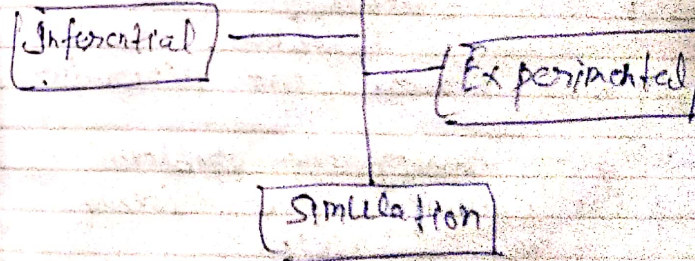 Inferential
Experimental
Simulation